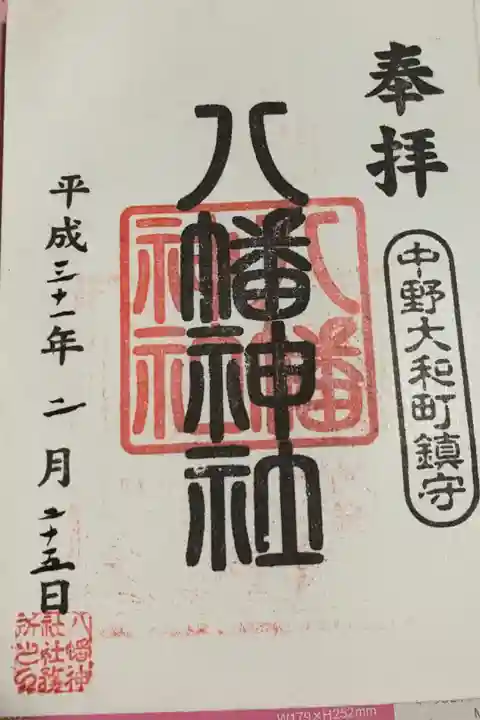 奉拝
中野大和町鎮守
八幡神社
八幡
神社
平成三十一年二月二十五日
八幡神
社社務
所之印
W179×H252mm